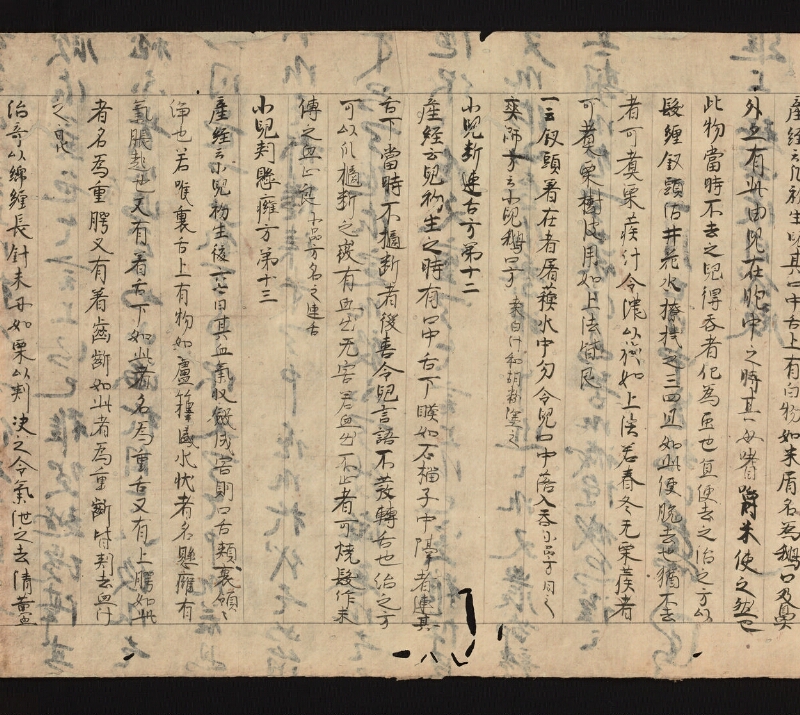 産経云凡初生時其口中舌上有白物如米屑名為鵝口及鼻
外亦有此由児在胞中之時其母嗜嚼米使之然也
此物當時不去之児得吞者化為虫也宜使去之治之方以
髪纏釵頭沾井花水撩拭之三四旦如此便脱去也猶不去
者可煮栗蒺汁令濃以綿如上法若春冬无栗蒺者
可煮栗樹皮用如上法皆良
一云釵頭著在者屠蘓水中勿令児口中落入吞
小児鵝口方
小児断連舌方第十二
産経云児初生之時有口中舌下膜如石榴子中隔者連其
舌下當時不摘断者後喜令児言語不發轉舌也治之方
可以爪摘断之微有血出无害若血出不止者可焼髪作末
傅之血止良 小品方名之連舌
小児刺懸癰方第十三
産経云小児初生後六七日其血氣収斂成害則口舌頬裏領〻
浄也若喉裏舌上有物如盧籜盛水状者名懸癰有
氣脹起也又有著舌下如此者名為重舌又有上腭如此
者名為重腭又有著歯断如此者為重断皆刺去血汁
之日也
治之方以綿纏長針未刃如粟以刺決之令氣泄之去清黄血